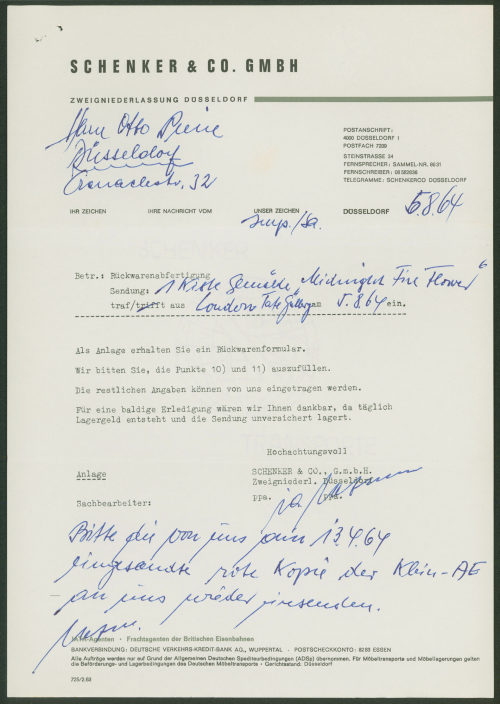 SCHENKER & CO. GMBH
ZWEIGNIEDERLASSUNG DÜSSELDORF
Herrn Otto Piene
Düsseldorf
Cranachstr. 32
POSTANSCHRIFT:
4000 DÜSSELDORF 1
POSTFACH 7209
STEINSTRASSE 34
FERNSPRECHER: SAMMEL-NR. 8031
FERNSCHREIBER: 08 582836
TELEGRAMME: SCHENKERCO DÜSSELDORF
IHR ZEICHEN IHRE NACHRICHT VOM UNSER ZEICHEN DÜSSELDORF 5.8.64
imp./Sa.
Betr.: Rückwarenabfertigung
Sendung: 1 Kiste Gemälde "Midnight Fire Flower"
traf/trifft aus London Tate Gallery am 5.8.64 ein.
Als Anlage erhalten Sie ein Rückwarenformular.
Wir bitten Sie, die Punkte 10) und 11) auszufüllen.
Die restlichen Angaben können von uns eingetragen werden.
Für eine baldige Erledigung wären wir Ihnen dankbar, da täglich
Lagergeld entsteht und die Sendung unversichert lagert.
Hochachtungsvoll
Anlage
SCHENKER & CO., G.m.b.H.
Zweigniederl. Düsseldorf
ppa. ppa.
Sachbearbeiter:
Bitte die von uns am 13.4.64
eingesandte rote Kopie der Klein-AE
an uns wieder einsenden.
IATA-Agenten · Frachtagenten der Britischen Eisenbahnen
BANKVERBINDUNG: DEUTSCHE VERKEHRS-KREDIT-BANK AG., WUPPERTAL · POSTSCHECKKONTO: 8283 ESSEN
Alle Aufträge werden nur auf Grund der Allgemeinen Deutschen Spediteurbedingungen (ADSp) übernommen. Für Möbeltransporte und Möbellagerungen gelten
die Beförderungs- und Lagerbedingungen des Deutschen Möbeltransports · Gerichtsstand: Düsseldorf
725/2.63